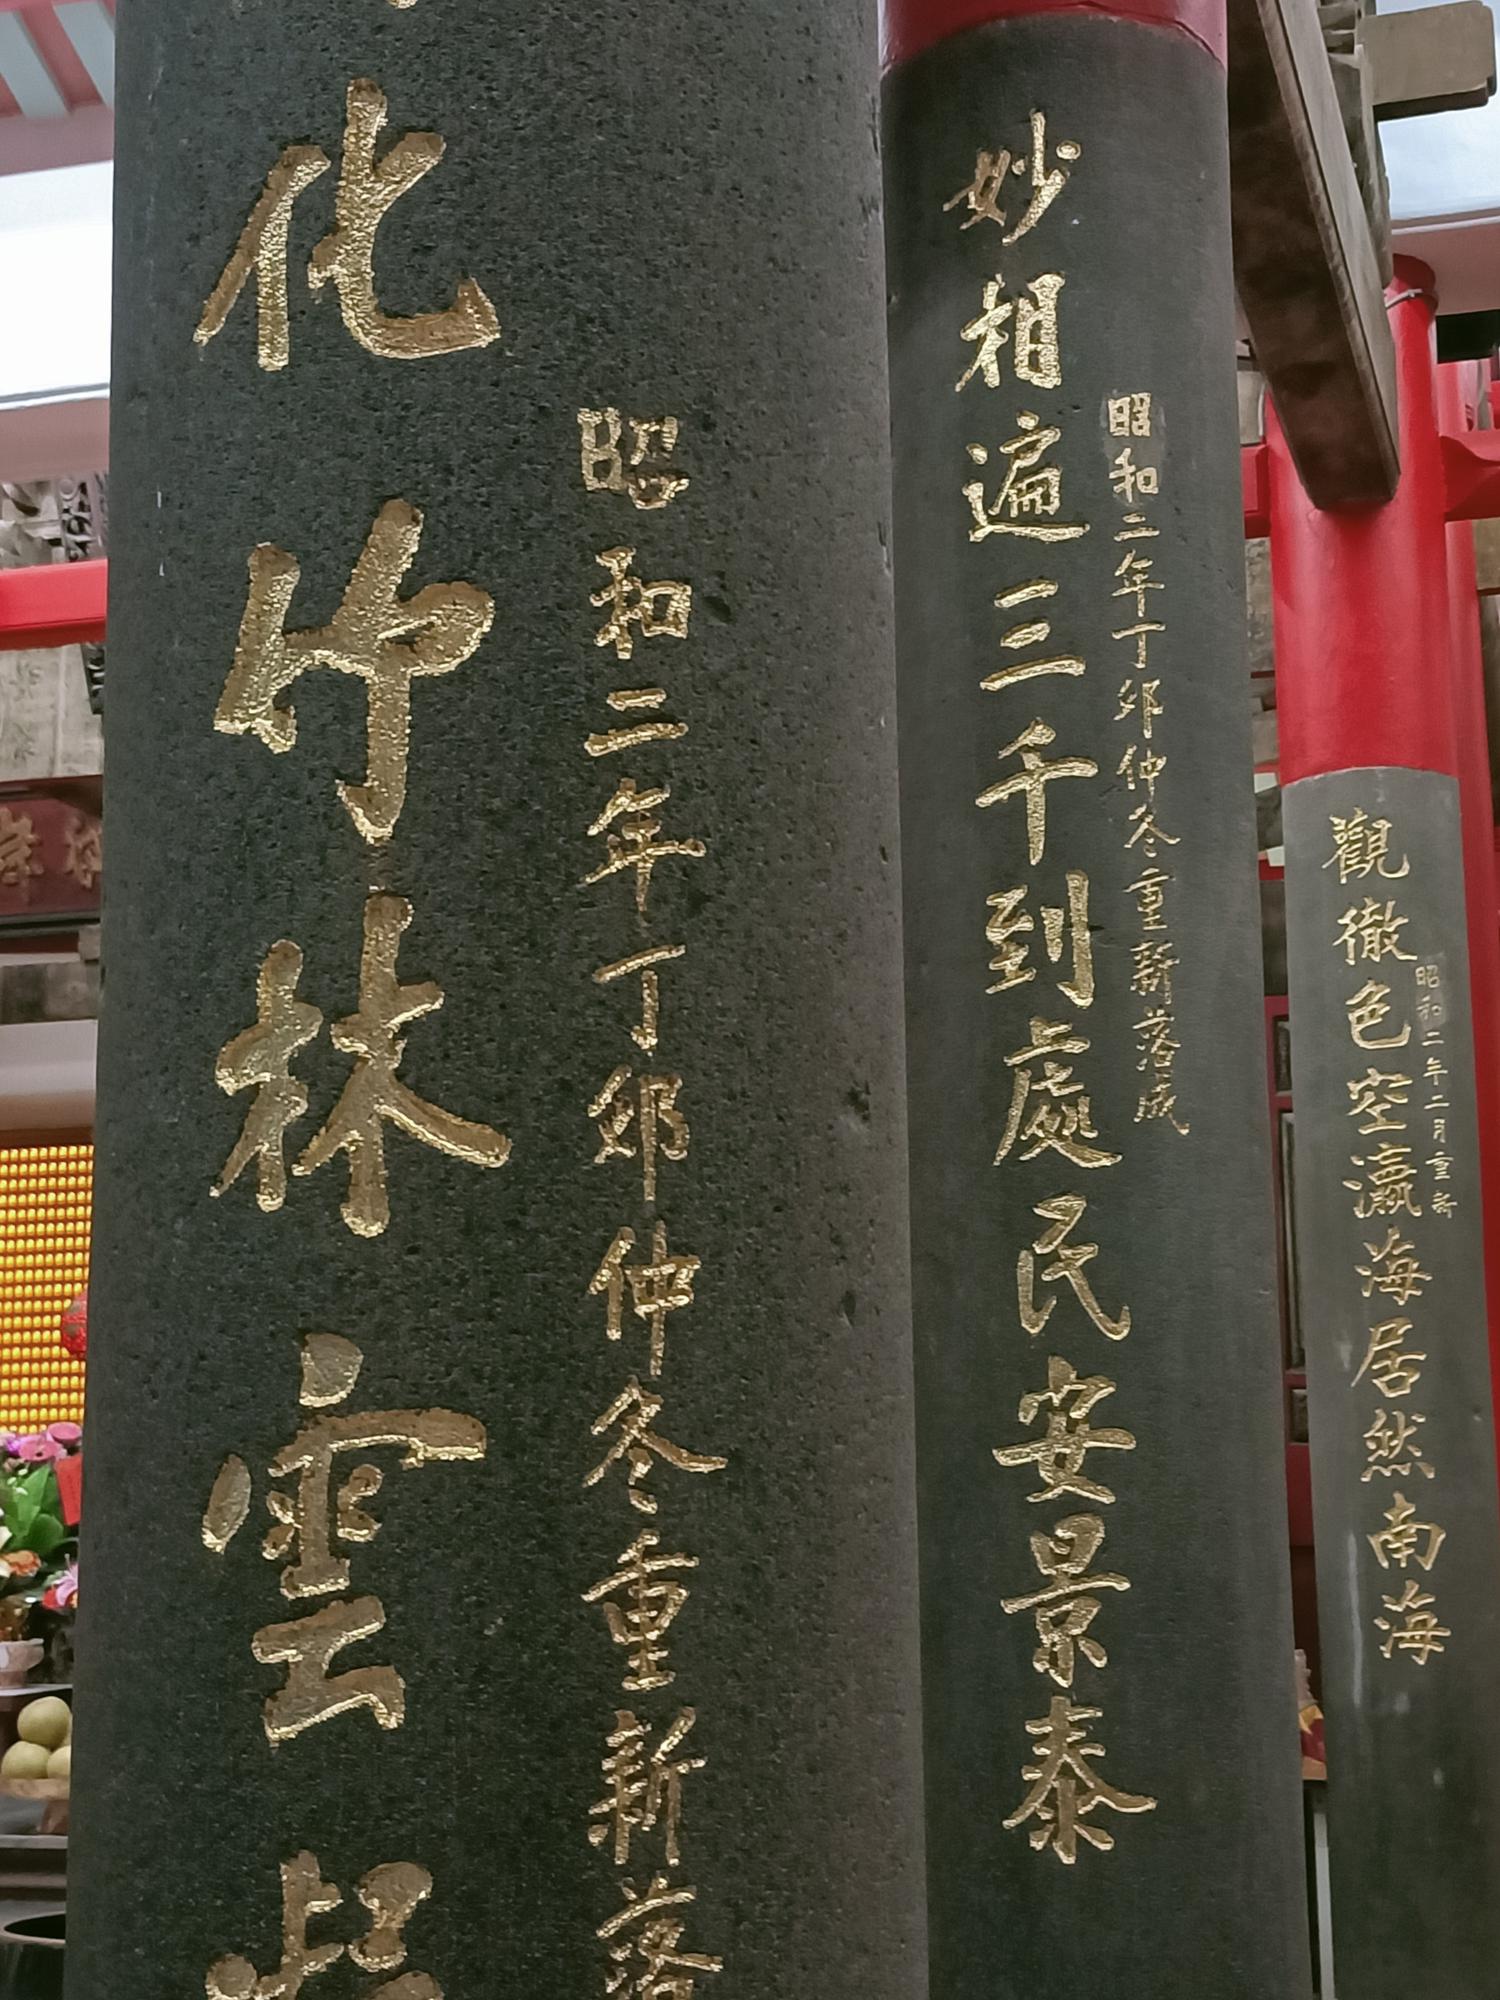 化竹林雲
昭和二年丁卯仲冬重新落
妙相遍三千到處民安景泰
昭和二年丁卯仲冬重新落成
觀徹色空瀛海居然南海
昭和二年二月重新